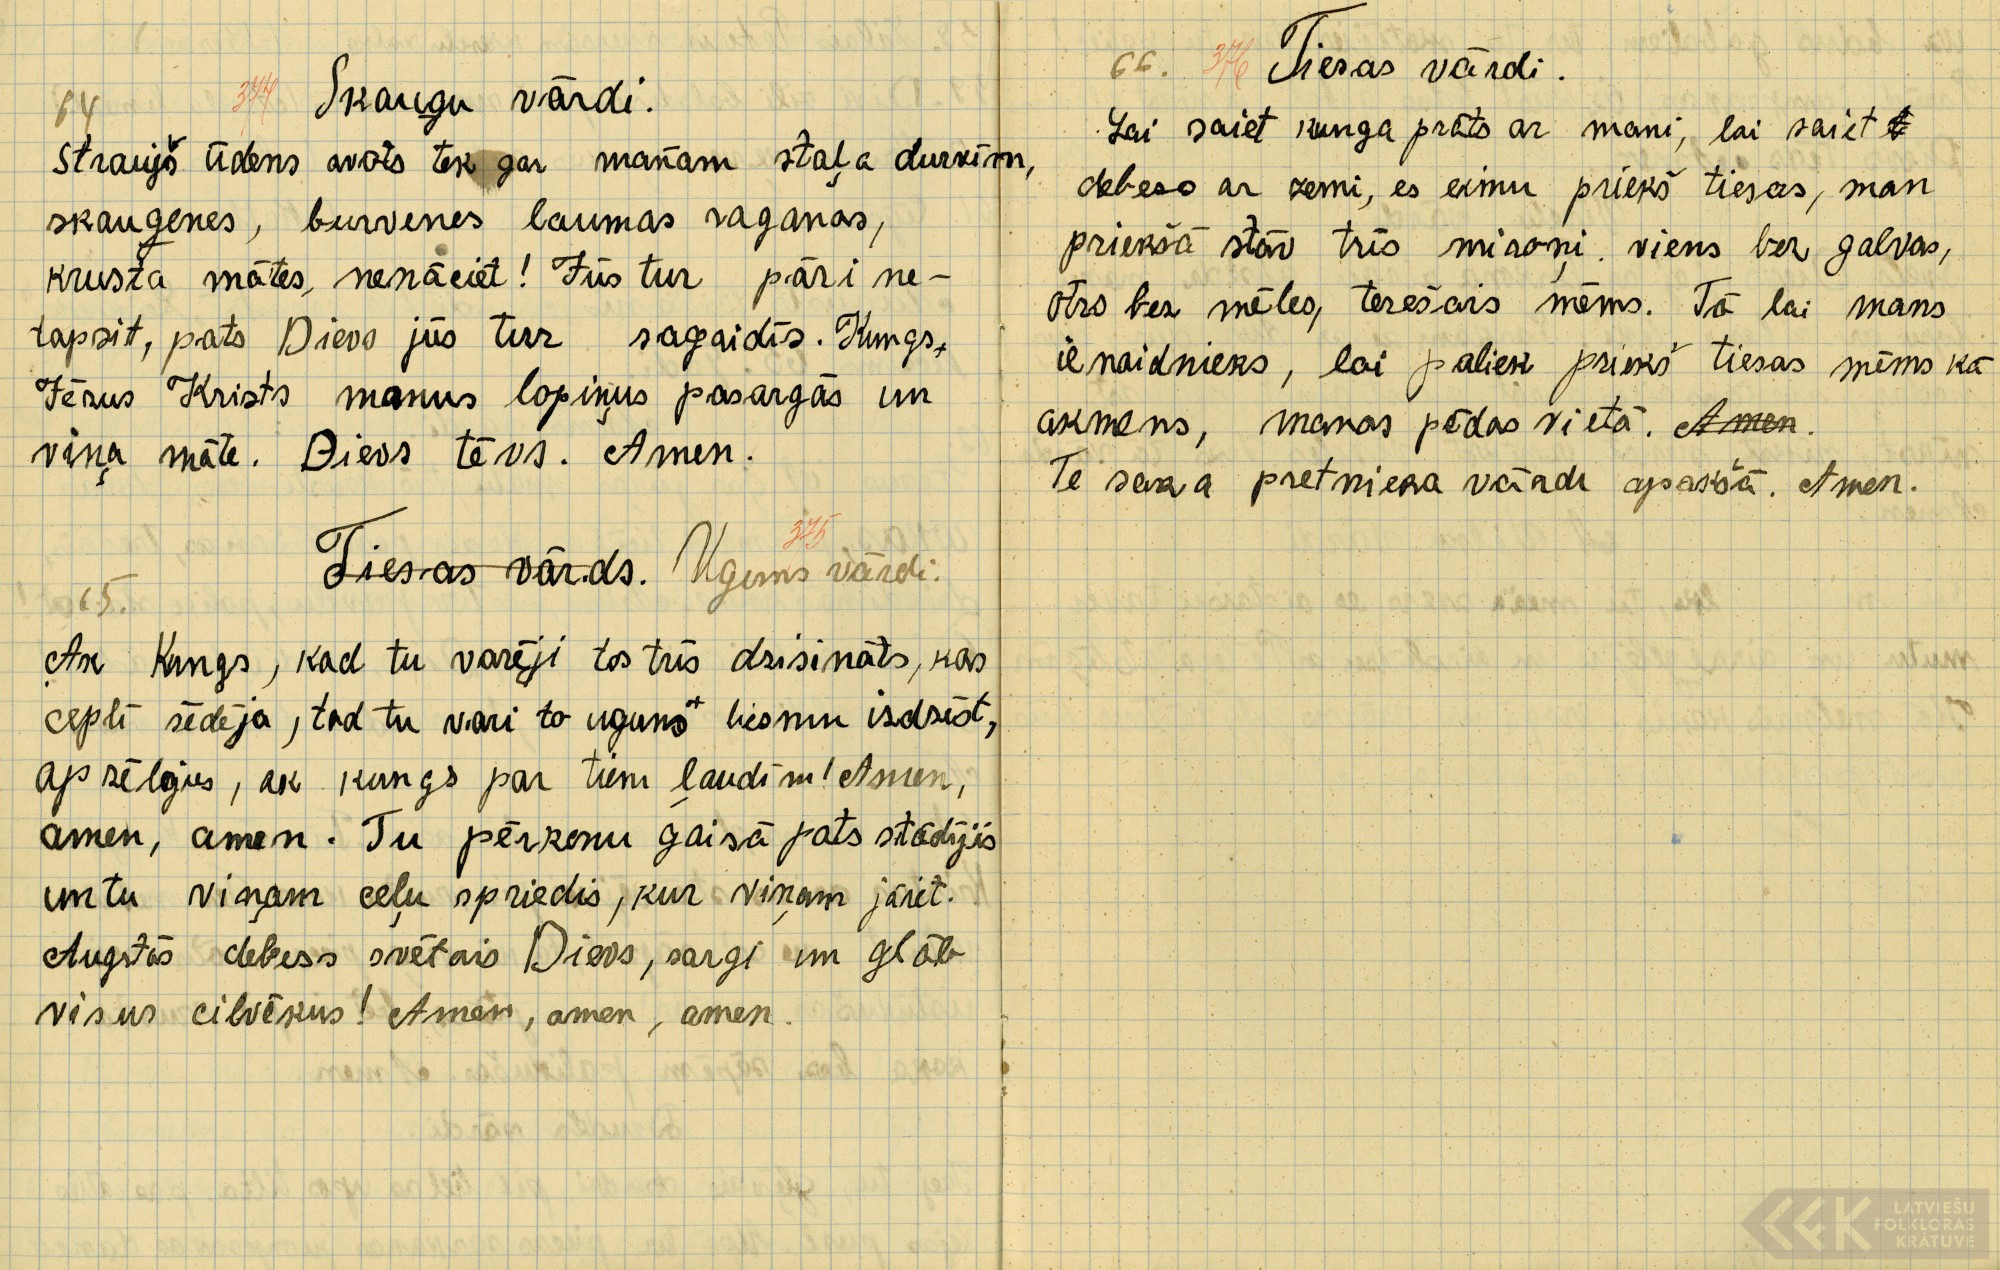 64 374 Skauģu vārdi.
Straujš ūdens avots tek gar manam staļa durvīm,
skauģenes, burvenes laumas raganas,
krusta mātes, nenāciet! Jūs tur pāri ne-
tapsit, pats Dievs jūs tur sagaidīs. Kungs,
Jēzus Krists manus lopiņus pasargās un
viņa māte. Dievs tēvs. Amen.
Tiesas vārds. 375 Uguns vārdi.
65.
Ak Kungs, kad tu varēji tos trīs dzisināts, kas
ceplī sēdēja, tad tu vari to uguns+ liesmu izdzēst,
apžēlojies, ak kungs par tiem ļaudīm! Amen,
amen, amen. Tu pērkonu gaisā pats stādījis
un tu viņam ceļu spriedis, kur viņam jāiet.
Augstās debess svētais Dievs, sargi un glāb
visus cilvēkus! Amen, amen, amen.
66. 376 Tiesas vārdi.
Lai saiet kunga prāts ar mani, lai saiet
debess ar zemi, es eimu priekš tiesas, man
priekšā stāv trīs miroņi. viens bez galvas,
otrs bez mēles, terešais mēms. Tā lai mans
ienaidnieks, lai paliek priekš tiesas mēms kā
akmens, manas pēdas vietā. Amen.
Te saka pretnieka vārdu apakšā. Amen.
LATVIEŠU
FOLKLORAS
KRĀTUVE